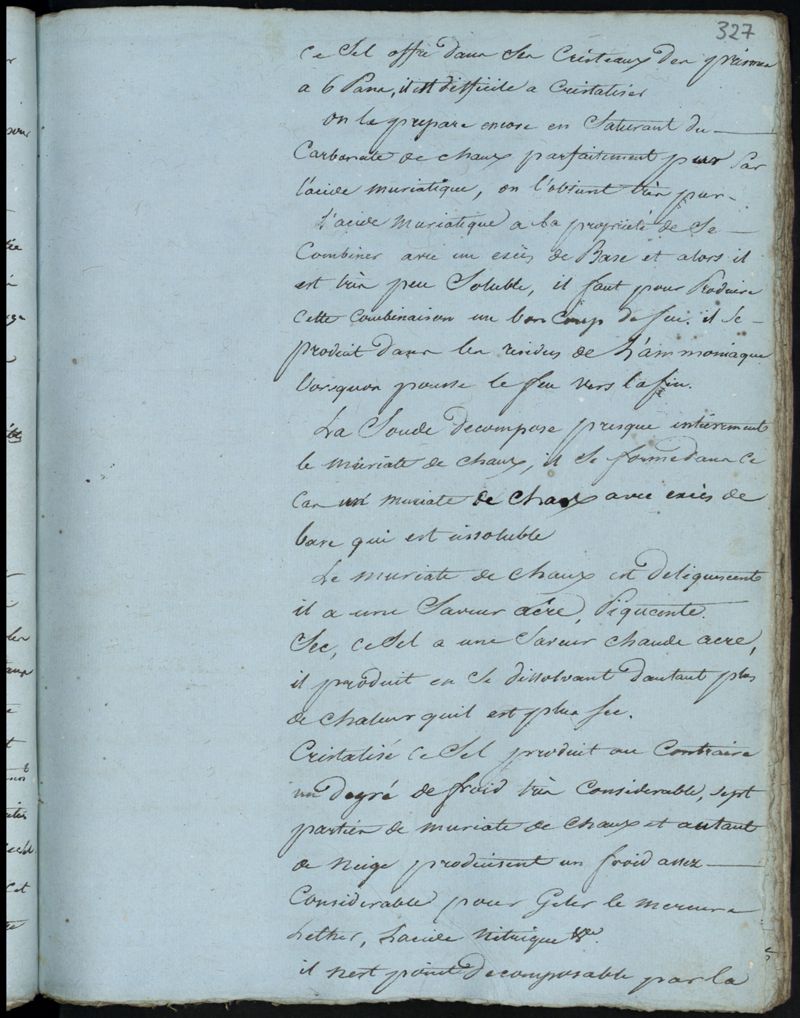 327
Ce Sel offre dans ses Cristeaux des prismes
a 6 Pans, il est difficile a Cristaliser
on le prepare encore en Saturant du
Carbonate de chaux parfaitement pur par
l'acide muriatique, on l'obtient très pur.
L'acide Muriatique a la propriété de Se
Combiner avec un excès de Base et alors il
est très peu Soluble, il faut pour Produire
Cette Combinaison un bon Coup de feu. il Se
produit dans les residus de L'ammoniaque
Lorsquon pousse le feu vers la fin.
La Soude decompose presque intièrement
le muriate de chaux, il Se forme dans Ce
Cas un muriate de chaux avec excès de
base qui est insoluble
Le muriate de chaux est deliquescent
il a une Saveur acre, Piquente.
Sec, ce Sel a une Saveur chaude acre,
il produit en Se dissolvant d'autant plus
de chaleur quil est plus Sec.
Cristalisé Ce Sel produit au Contraire
un degré de froid très Considerable, sept
parties de muriate de chaux et autant
de Neige produisent un froid assez
Considerable pour Geler le mercure
Lether, Lacide Nitrique &a.
il nest point decomposable par la